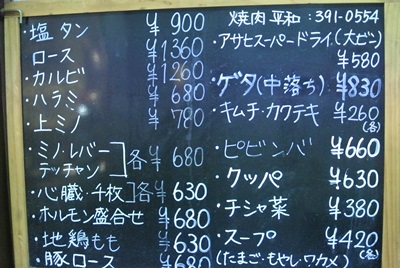 ・塩タン ¥900
ロース ¥1360
・カルビ ¥1260
・ハラミ ¥680
・上ミノ ¥780
・ミノ・レバー
テッチャン 各 ¥680
・心臓・千枚 各 ¥630
・ホルモン盛合せ ¥680
・地鶏もも ¥630
・豚ロース ¥680
焼肉 平和:391-0554
・アサヒスーパードライ(大ビン)
¥580
・ゲタ(中落ち) ¥830
・キムチ・カクテキ ¥260
(各)
・ピビンバ ¥660
・クッパ ¥630
・チシャ菜 ¥380
・スープ ¥420
(各)
(たまご・もやし・ワカメ)